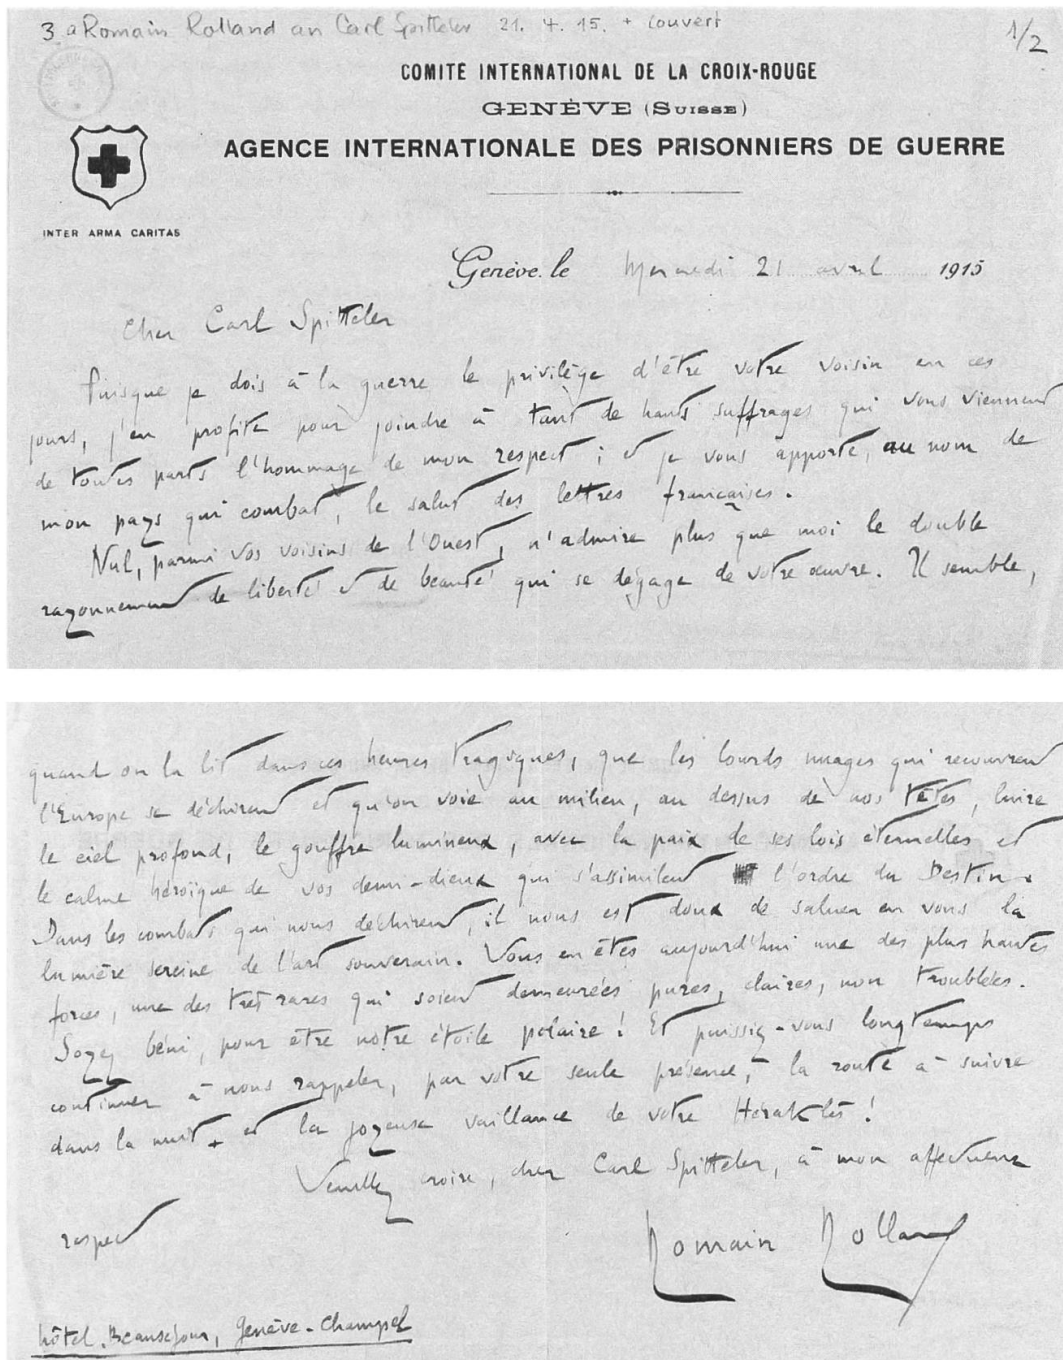 3 a Romain Rolland an Carl Spitteler 21. 4. 15. + Couvert
1/2
COMITÉ INTERNATIONAL DE LA CROIX-ROUGE
GENÈVE (SUISSE)
AGENCE INTERNATIONALE DES PRISONNIERS DE GUERRE
INTER ARMA CARITAS
Genève, le Mercredi 21 avril 1915
Cher Carl Spitteler
Puisque je dois à la guerre le privilège d'être votre voisin en ces
jours, j'en profite pour joindre à tant de hauts suffrages qui vous viennent
de toutes parts l'hommage de mon respect ; et je vous apporte, au nom de
mon pays qui combat, le salut des lettres françaises.
Nul, parmi vos voisins de l'Ouest, n'admire plus que moi le double
rayonnement de liberté et de beauté qui se dégage de votre œuvre. Il semble,
quand on la lit dans ces heures tragiques, que les lourds nuages qui recouvrent
l'Europe se déchirent et qu'on voie au milieu, au dessus de nos têtes, luire
le ciel profond, le gouffre lumineux, avec la paix de ses lois éternelles et
le calme héroïque de vos demi-dieux qui s'assimilent l'ordre du Destin.
Dans les combats qui nous déchirent, il nous est doux de saluer en vous la
lumière sereine de l'art souverain. Vous en êtes aujourd'hui une des plus hautes
forces, une des très rares qui soient demeurées pures, claires, non troublées.
Soyez béni, pour être notre étoile polaire ! Et puissiez-vous longtemps
continuer à nous rappeler, par votre seule présence, la route à suivre
dans la nuit et la joyeuse vaillance de votre Héraklès !
Veuillez croire, cher Carl Spitteler, à mon affectueux
respect
Romain Rolland
hôtel Beauséjour, Genève-Champel